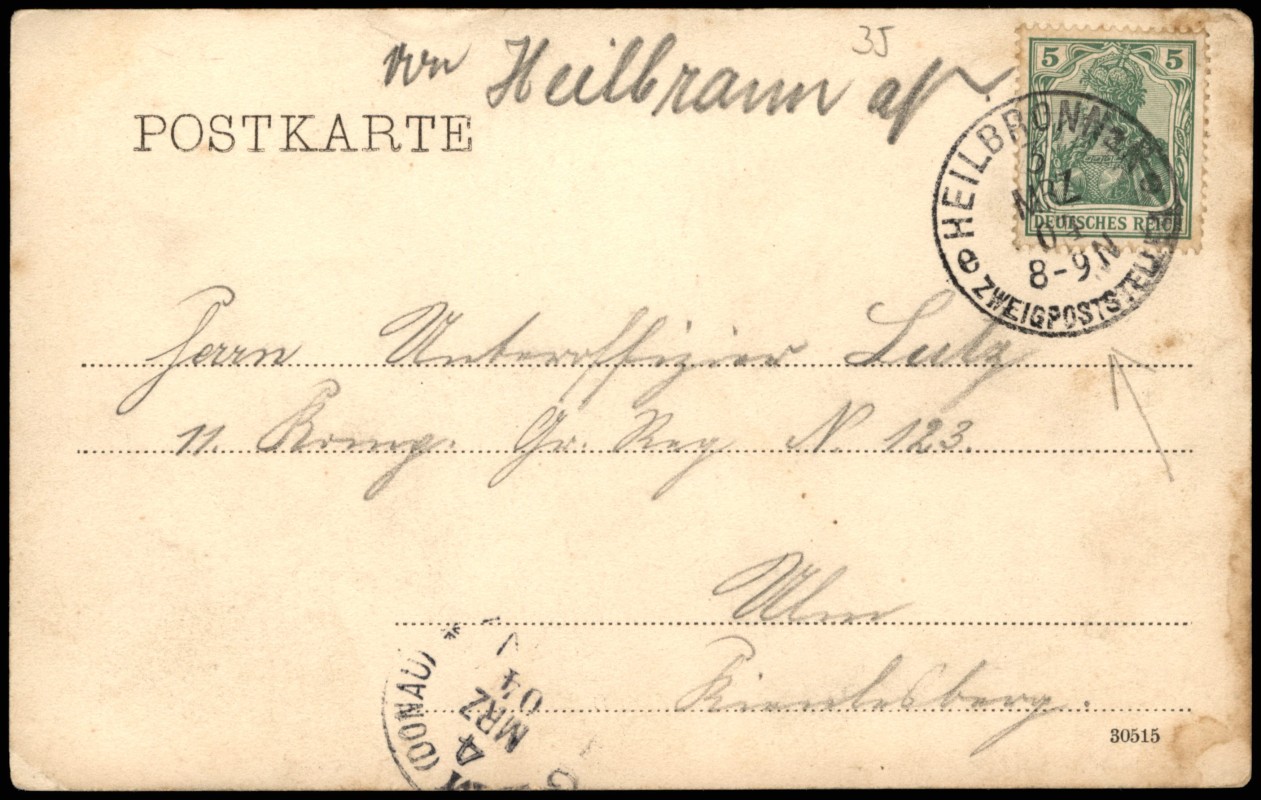 35
von Heilbronn
POSTKARTE
5 5
DEUTSCHES REICH
HEILBRONNER
3
MRZ
04
8-9N
ZWEIGPOSTSTELLE
Herrn Unteroffizier Lutz
11. Komp. Gr. Reg N. 123.
Ulm
Kienlesberg.
(DONAU) *
4
MRZ
04
30515